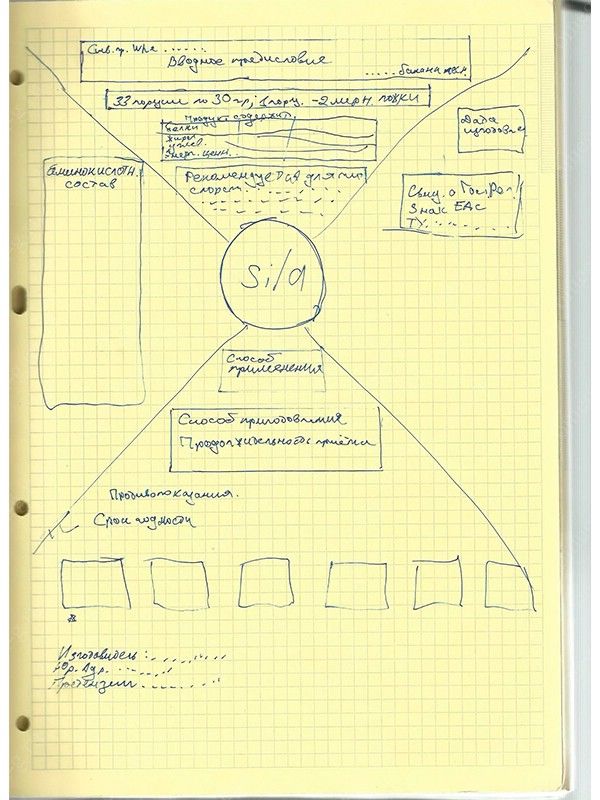 Вводное предисловие
..... банана
33 порции по 30 гр; 1 порц. - 2 мерн. ложки
Продукт содержит
Белки
Жиры
углев.
Энерг. ценн..
Дата
Аминокислотн.
состав
Рекомендуется для
спорт.
Свид. о Гос
Знак ЕАС
ТУ.
Si/a
Способ
применения
Способ приготовления
Продолжительность приёма
Противопоказания.
Срок годности
Изготовитель:
Юр. Адр.
Претензии